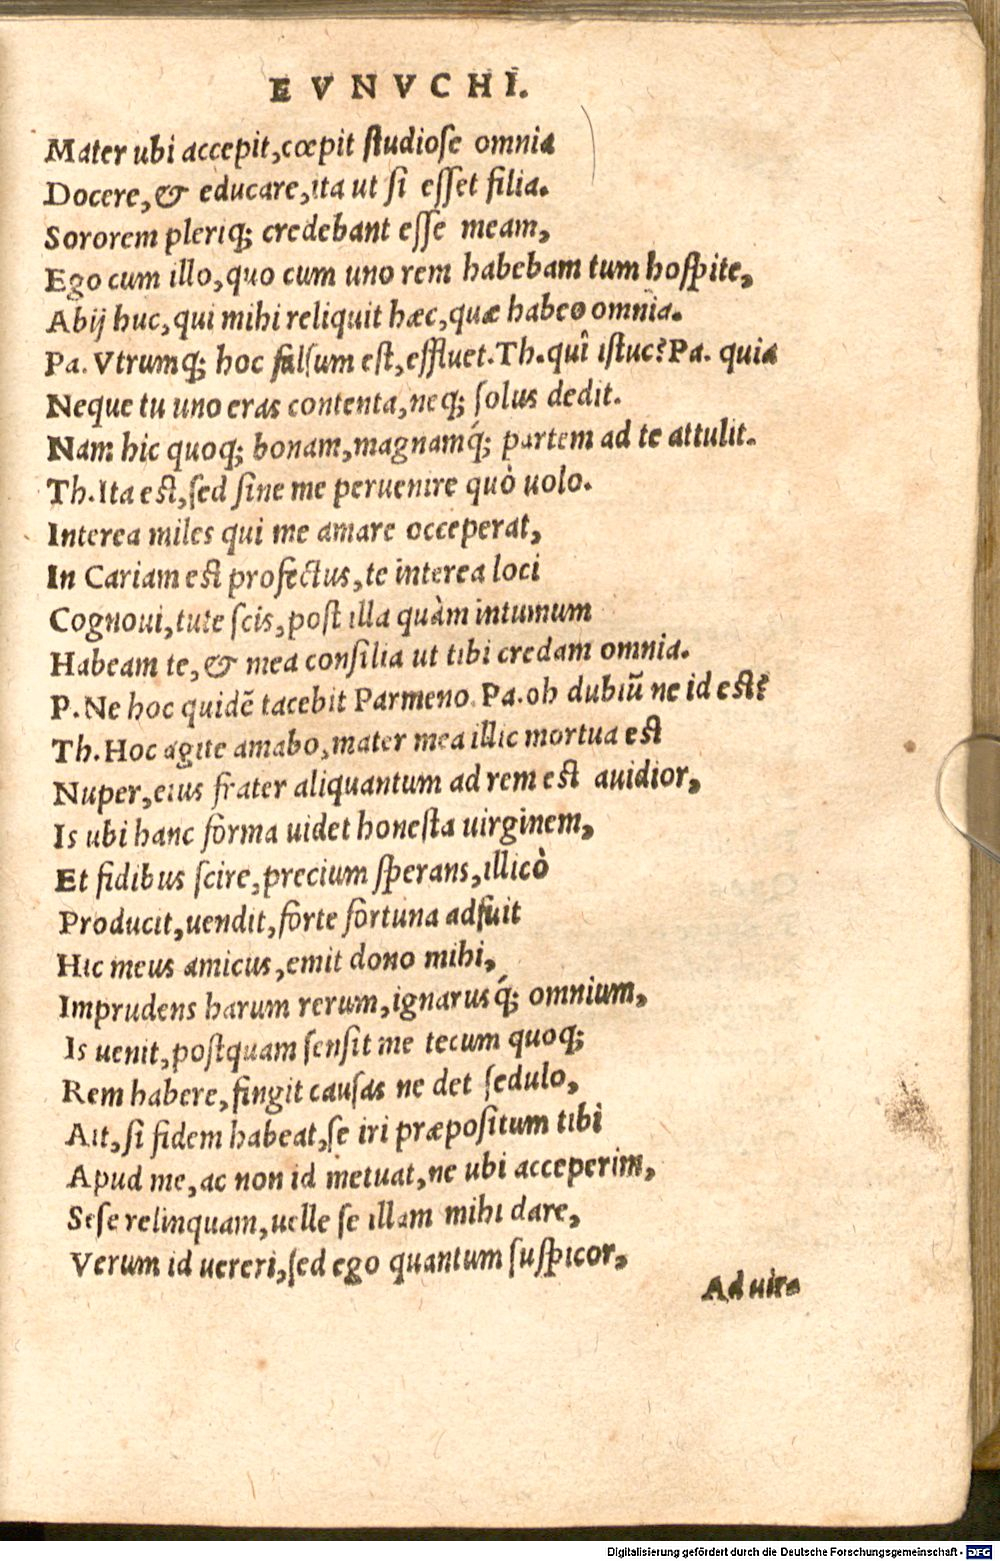 EVNVCHI.
Mater ubi accepit,cœpit ſtudioſe omnia
Docere,& educare,ita ut ſi eſſet filia.
Sororem pleriq; credebant eſſe meam,
Ego cum illo,quo cum uno rem habebam tum hoſpite,
Abij huc,qui mihi reliquit hæc,quæ habeo omnia.
Pa. Vtrumq; hoc falſum eſt,effluet.Th.quî iſtuc?Pa. quia
Neque tu uno eras contenta,neq; ſolus dedit.
Nam hic quoq; bonam,magnamq́; partem ad te attulit.
Th.Ita eſt,ſed ſine me peruenire quò uolo.
Interea miles qui me amare occeperat,
In Cariam eſt profectus,te interea loci
Cognoui,tute ſcis,poſt illa quàm intumum
Habeam te,& mea conſilia ut tibi credam omnia.
P.Ne hoc quidē tacebit Parmeno. Pa.oh dubiū ne id eſt?
Th.Hoc agite amabo,mater mea illic mortua eſt
Nuper,eius frater aliquantum ad rem eſt auidior,
Is ubi hanc forma uidet honeſta uirginem,
Et fidibus ſcire,precium ſperans,illicò
Producit,uendit,forte fortuna adfuit
Hic meus amicus,emit dono mihi,
Imprudens harum rerum,ignarusq́; omnium,
Is uenit,poſtquam ſenſit me tecum quoq;
Rem habere,fingit cauſas ne det ſedulo,
Ait,ſi fidem habeat,ſe iri præpoſitum tibi
Apud me,ac non id metuat,ne ubi acceperim,
Seſe relinquam,uelle ſe illam mihi dare,
Verum id uereri,ſed ego quantum ſuſpicor,
Ad uir⸗
Digitalisierung gefördert durch die Deutsche Forschungsgemeinschaft - DFG